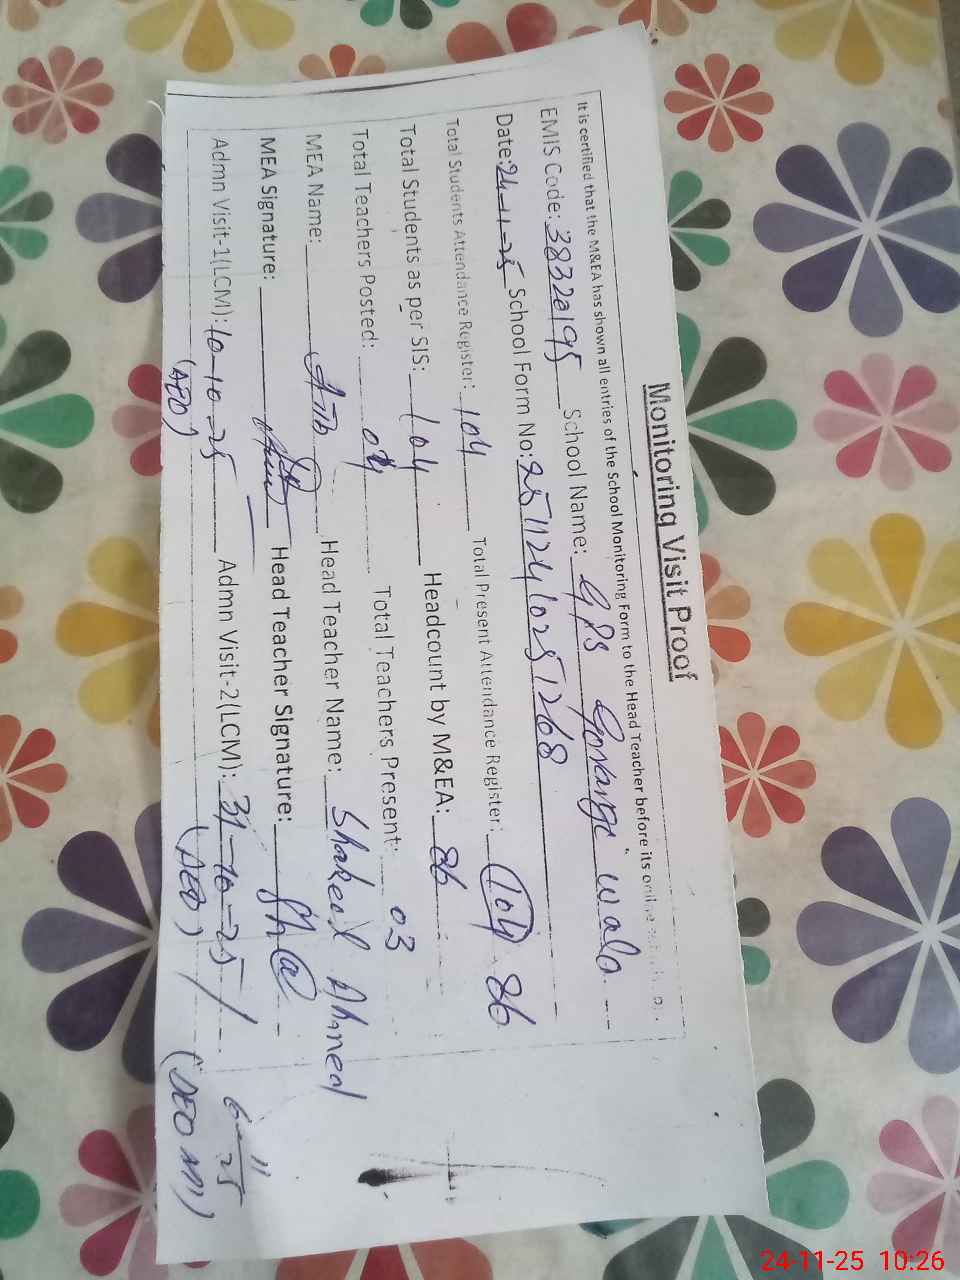 Monitoring Visit Proof
It is certified that the M&EA has shown all entries of the School Monitoring Form to the Head Teacher before its online
EMIS Code: 38320195 School Name: GPS wala
Date: 24-11-25 School Form No: 25112410251268
Total Students Attendance Register: 104 Total Present Attendance Register: 104 86
Total Students as per SIS: 104 Headcount by M&EA: 86
Total Teachers Posted: 04 Total Teachers Present: 03
MEA Name: Head Teacher Name: Shakeel Ahmed
MEA Signature: Head Teacher Signature:
Admn Visit-1(LCM): 10-10-25 Admn Visit-2(LCM): 31-10-25 / 6-11-25
(AEO) (AEO) (DEO
24-11-25 10:26